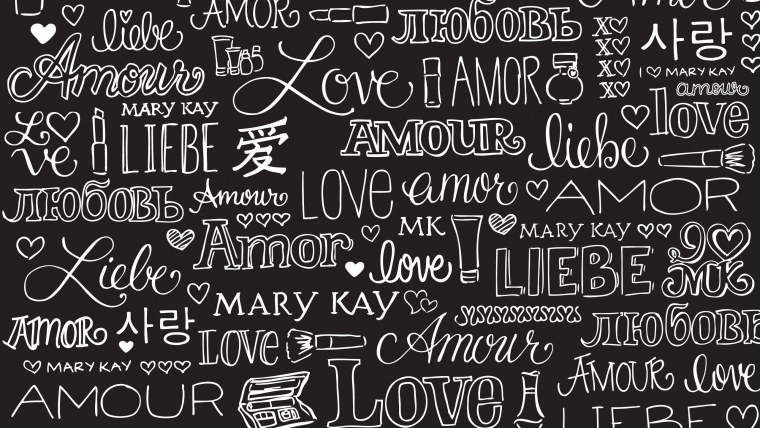 liebe
ЛЮБОВЬ
사랑
Amour
Love
AMOR
XO
XO
XO
XO
I ♡ MARY KAY
amour
MARY KAY
LOVE
LIEBE
爱
AMOUR
liebe
love
ЛЮБОВЬ
Amour
LOVE
amor
AMOR
Amor
MK
love
MARY KAY
LIEBE
MK
Liebe
MARY KAY
AMOR
사랑
LOVE
Amour
ЛЮБОВЬ
MARY KAY
AMOUR
Love
AMOUR
love
LIEBE